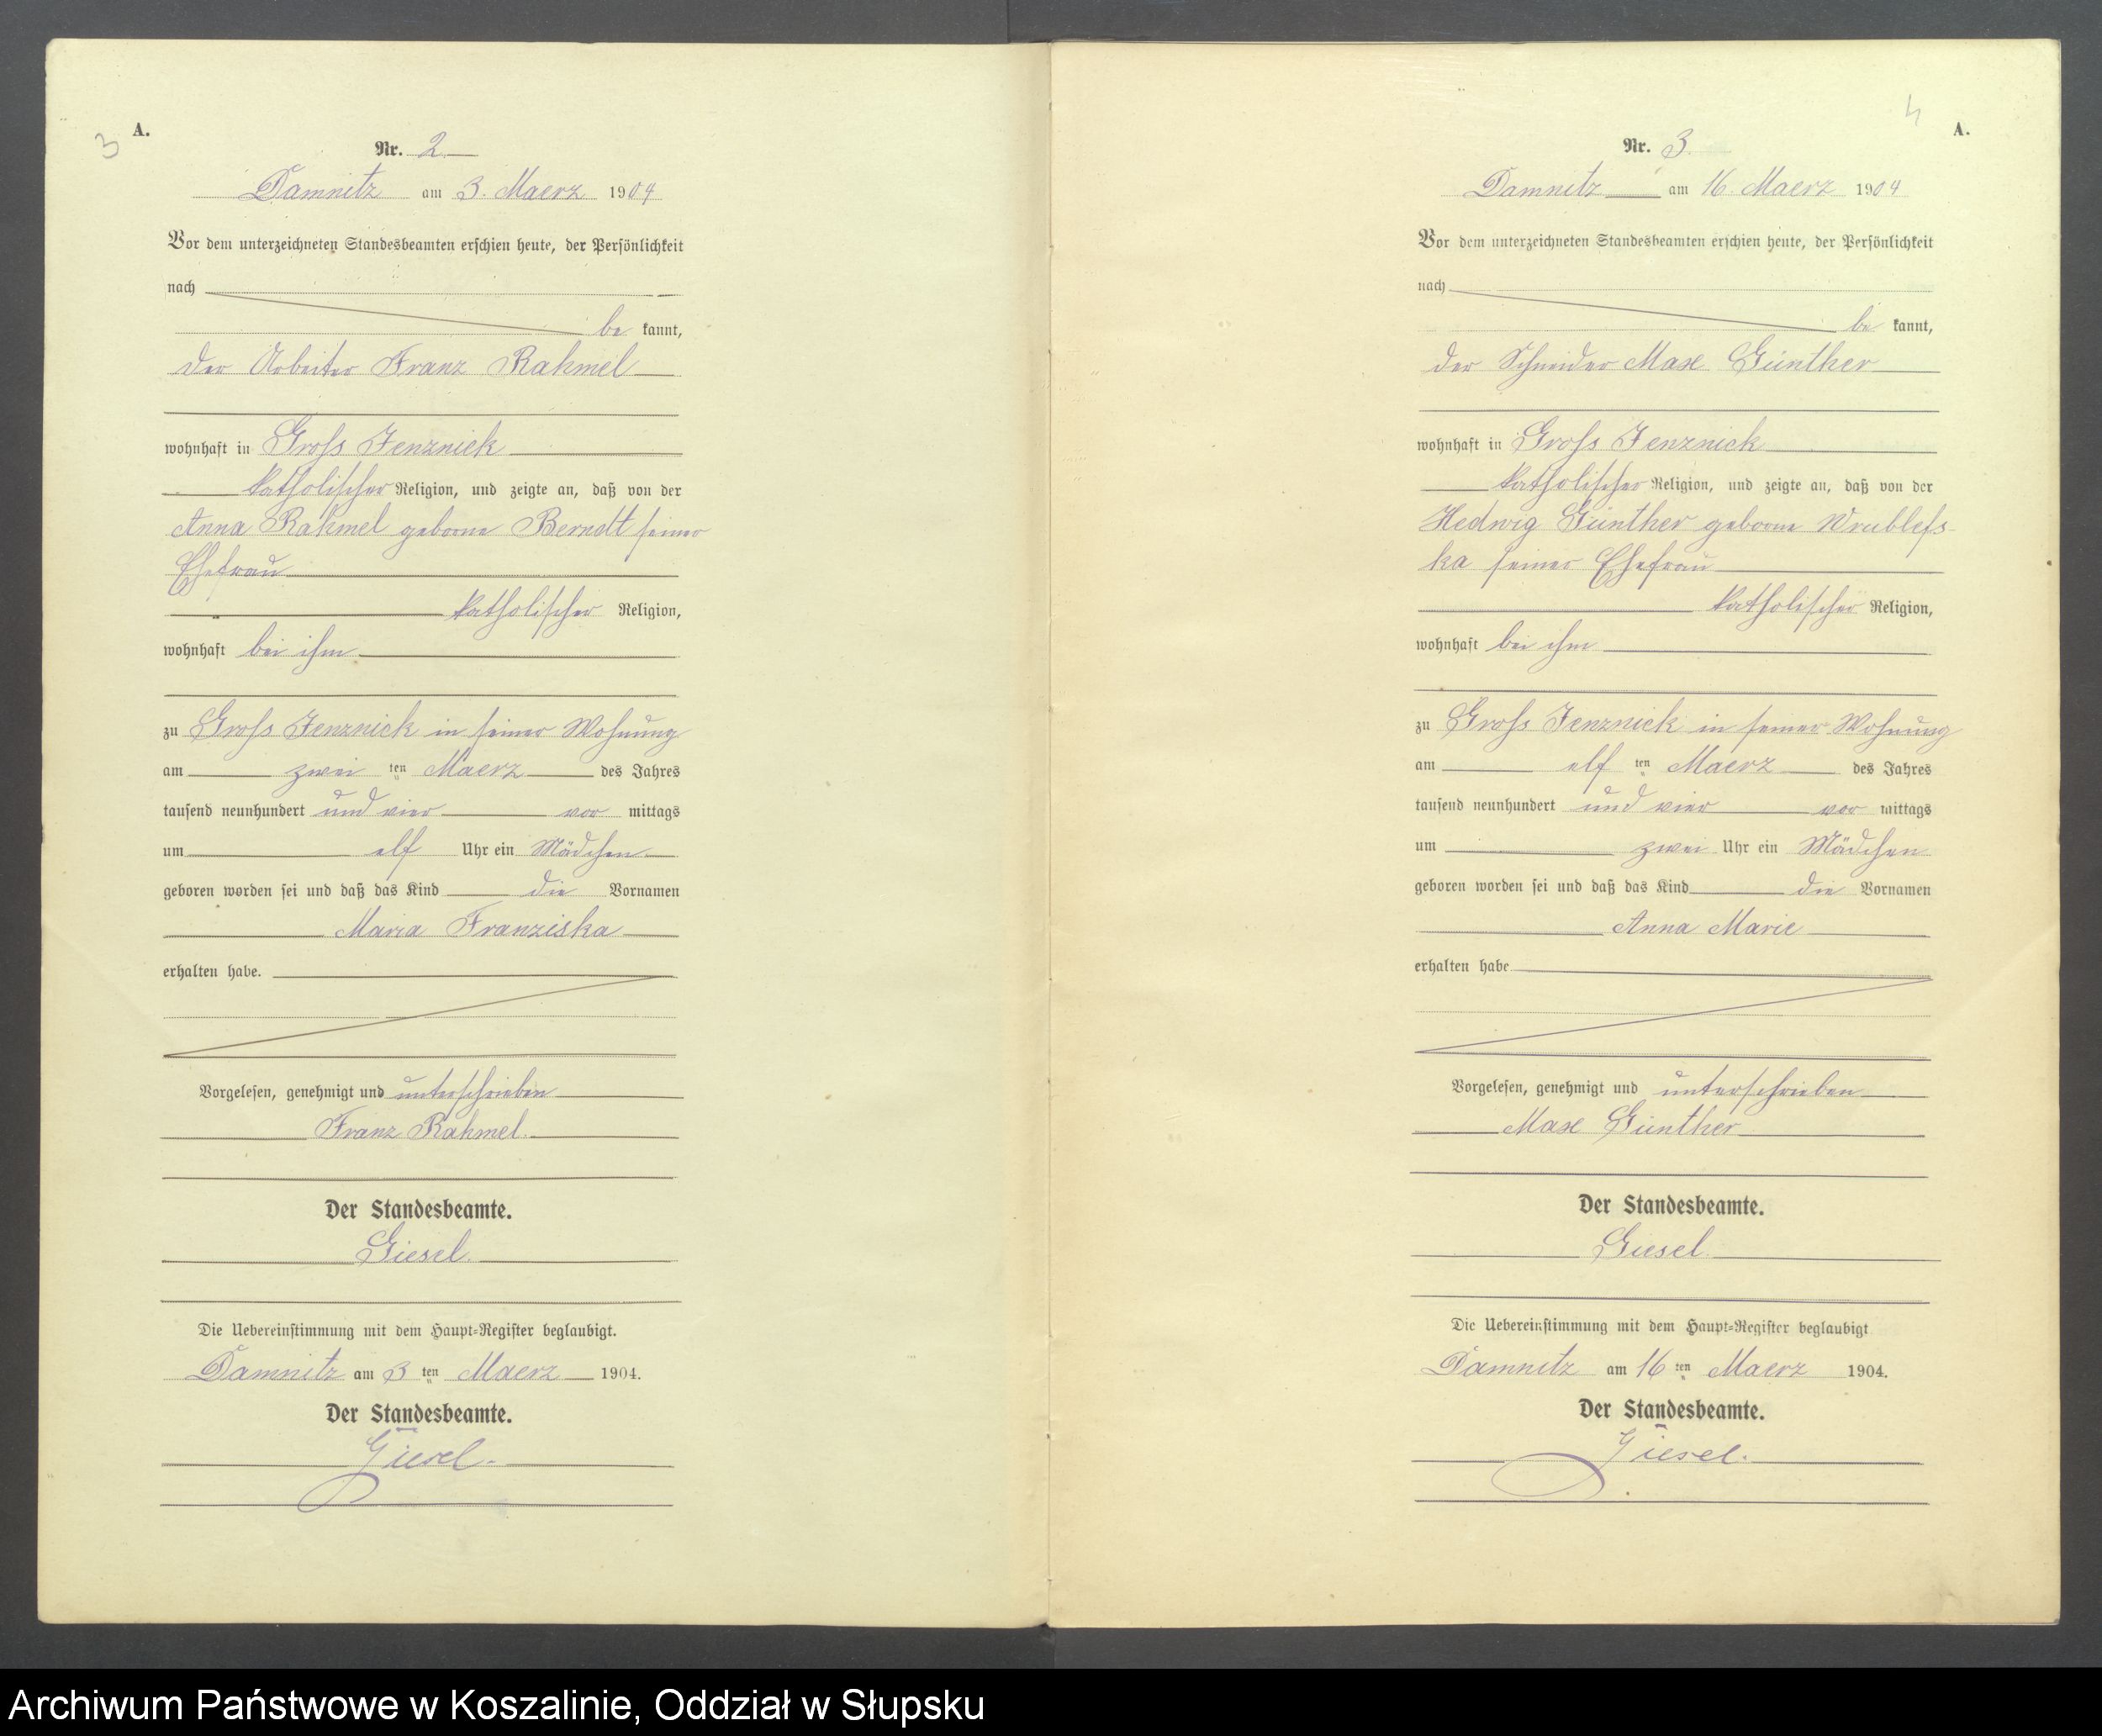 3
A.
Nr. 2
Damnitz am 3. Maerz 1904
Vor dem unterzeichneten Standesbeamten erschien heute, der Persönlichkeit
nach
be kannt,
der Arbeiter Franz Rahmel
wohnhaft in Groß Jenznick
katholischer Religion, und zeigte an, daß von der
Anna Rahmel geborne Berndt seiner
Ehefrau
katholischer Religion,
wohnhaft bei ihm
zu Groß Jenznick in seiner Wohnung
am zwei ten Maerz des Jahres
tausend neunhundert und vier vor mittags
um elf Uhr ein Mädchen
geboren worden sei und daß das Kind die Vornamen
Maria Franziska
erhalten habe.
Vorgelesen, genehmigt und unterschrieben
Franz Rahmel.
Der Standesbeamte.
Giesel.
Die Uebereinstimmung mit dem Haupt-Register beglaubigt.
Damnitz am 3 ten Maerz 1904.
Der Standesbeamte.
Giesel.
4
A.
Nr. 3.
Damnitz am 16. Maerz 1904
Vor dem unterzeichneten Standesbeamten erschien heute, der Persönlichkeit
nach
be kannt,
der Schneider Max Günther
wohnhaft in Groß Jenznick
katholischer Religion, und zeigte an, daß von der
Hedwig Günther geborne Wrublefs-
ka seiner Ehefrau
katholischer Religion,
wohnhaft bei ihm
zu Groß Jenznick in seiner Wohnung
am elf ten Maerz des Jahres
tausend neunhundert und vier vor mittags
um zwei Uhr ein Mädchen
geboren worden sei und daß das Kind die Vornamen
Anna Marie
erhalten habe
Vorgelesen, genehmigt und unterschrieben
Max Günther
Der Standesbeamte.
Giesel.
Die Uebereinstimmung mit dem Haupt-Register beglaubigt
Damnitz am 16 ten Maerz 1904.
Der Standesbeamte.
Giesel.
Archiwum Państwowe w Koszalinie, Oddział w Słupsku